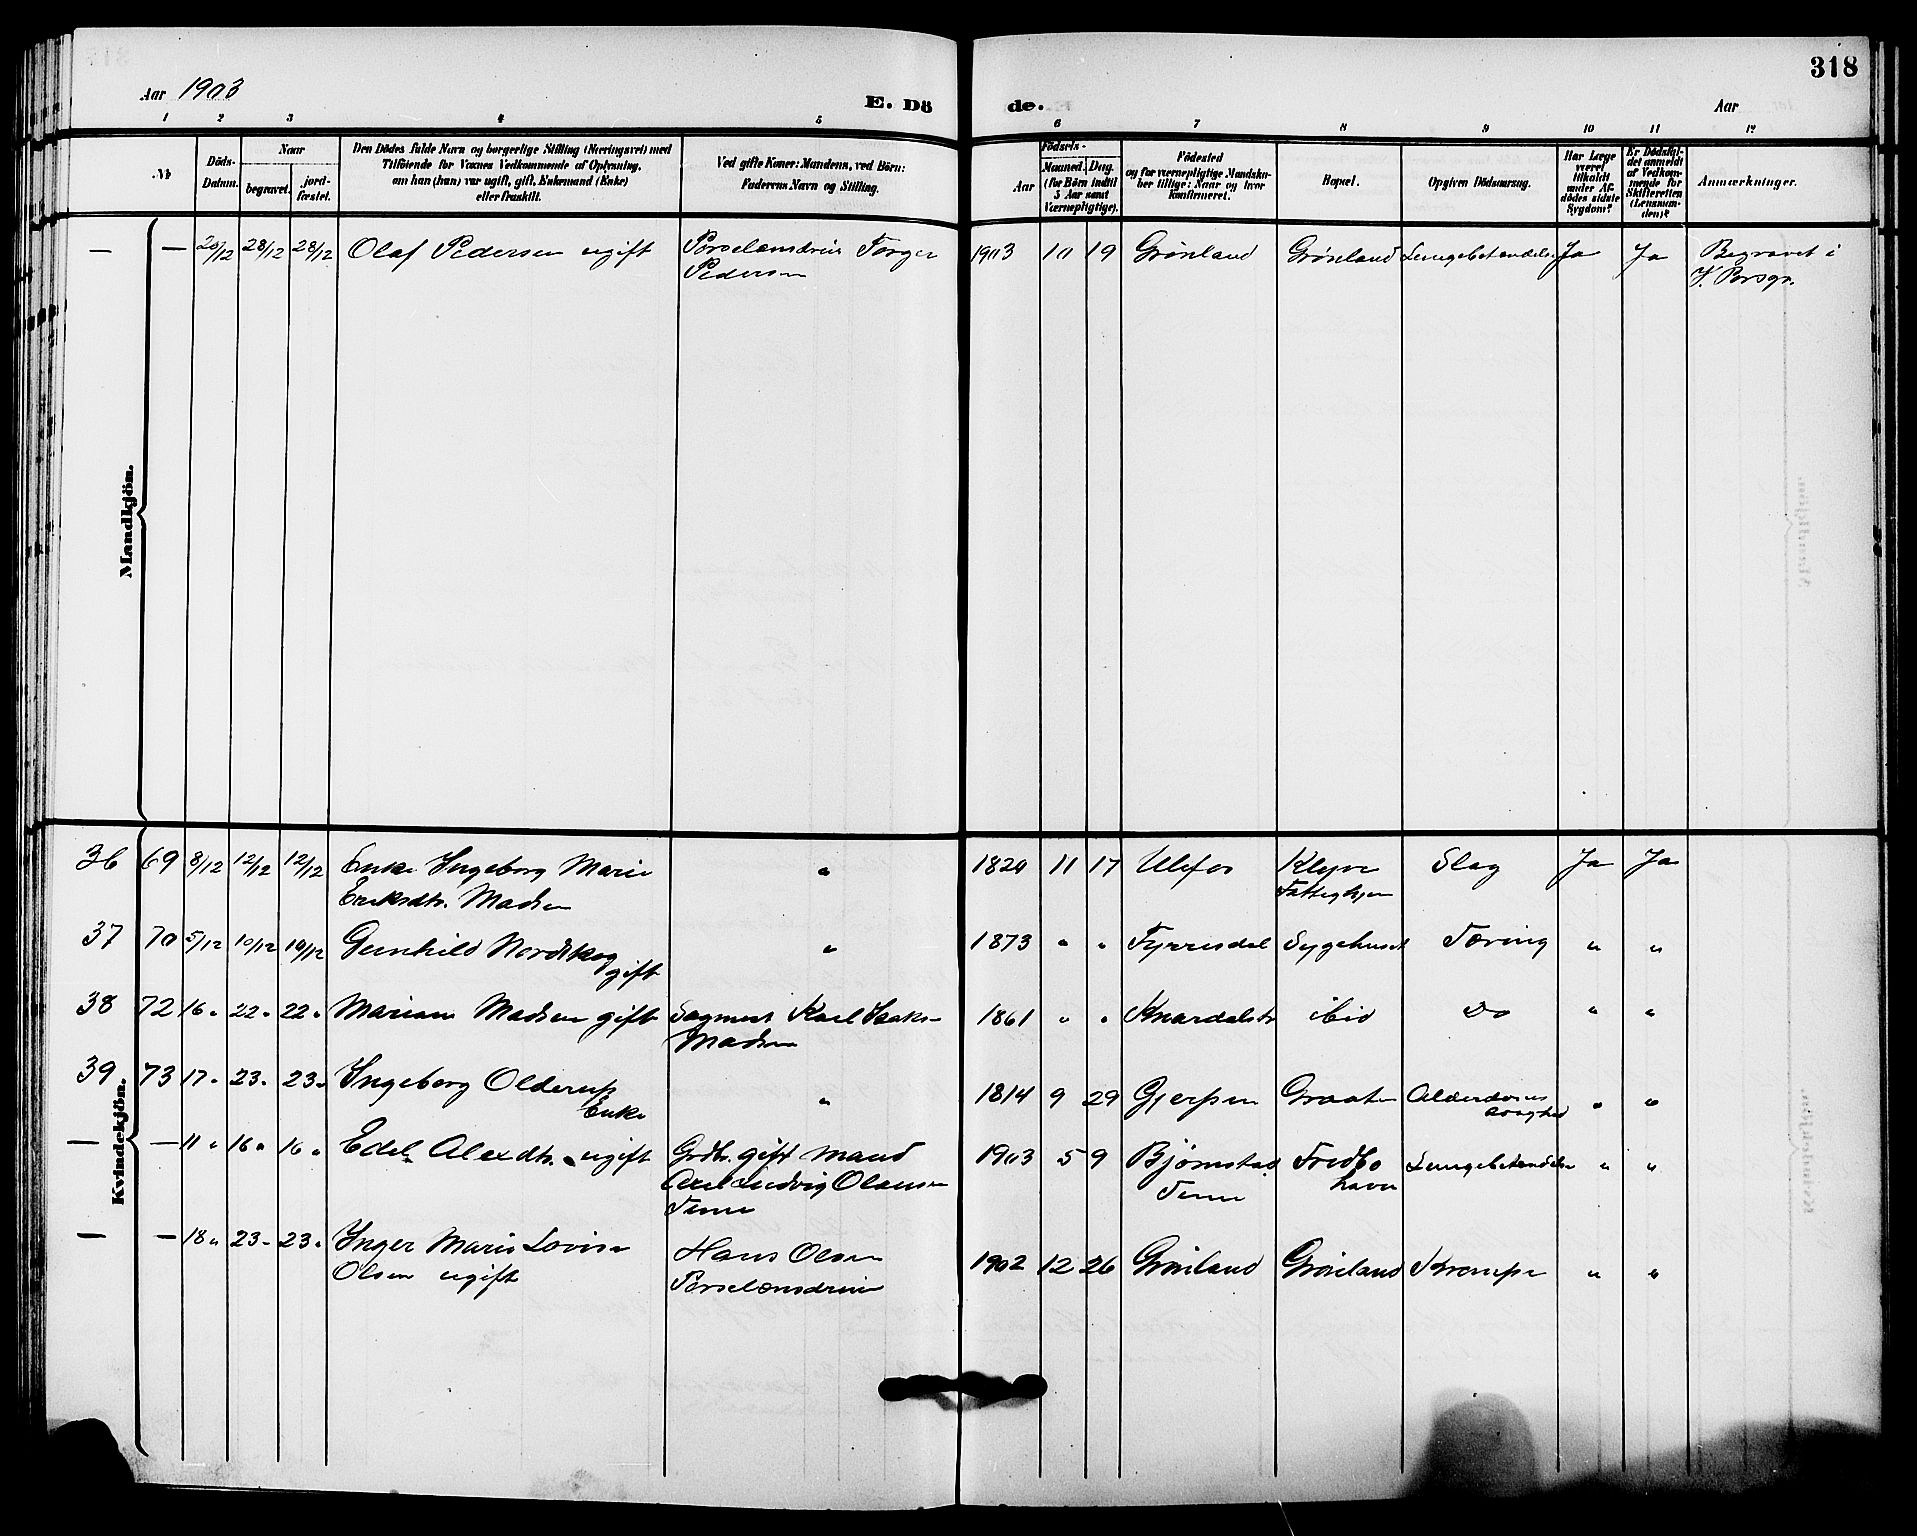 318
Aar 1903
E. Dö
de.
Aar
1 2 3 4 5 6 7 8 9 10 11 12
No
Döds-
Datum.
Naar
begravet.
jord-
fæstet.
Den Dödes fulde Navn og borgerlige Stilling (Næringsvei) med
Tilföiende for Voxnes Vedkommende af Oplysning,
om han (hun) var ugift, gift, Enkemand (Enke)
eller fraskilt.
Ved gifte Koner: Mandens, ved Börn:
Faderens Navn og Stilling.
Födsels-
Aar
Maaned. Dag.
(for Börn indtil
5 Aar samt
Værnepligtige).
Födested
og for værnepligtige Mandska-
ber tillige: Naar og hvor
konfirmeret.
Bopæl.
Opgiven Dödsaarsag.
Har Læge
været
tilkaldt
under Af-
dödes sidste
Sygdom?
Er Dödsfal-
det anmeldt
af Vedkom-
mende for
Skifteretten
(Lensman-
den)?
Anmærkninger.
Mandkjön.
— — 20/12 28/12 28/12 Olaf Pedersen ugift Porselænsdreier Torger 1903 10 19 Grønland Grønland Lungebetændelse Ja Ja Begravet i
Pedersen V. Porsgr.
Kvindekjön.
36 69 8/12 12/12 12/12 Enke Ingeborg Marie " 1820 11 17 Ulefos Klyve Slag Ja Ja
Eriksdtr. Madsen Fattighjem
37 70 5/12 10/12 10/12 Gunhild Nordskog " 1873 " " Tyrrisdal Sygehuset Tæring " "
gift
38 72 16" 22" 22" Mariane Madsen gift Sagmest Karl Isaks- 1861 " " Knardalstr ibid Do " "
Madsen
39 73 17" 23" 23" Ingeborg Olderup " 1814 9 29 Gjerpen Graaten Alderdoms " "
Enke svaghed
— — 11" 16" 16" Edel Alexdtr. ugift Grdbr. gift mand 1903 5 9 Bjørnstad Fredbo Lungebetændelse " "
Ludvig Olausen havn
— — 18" 23" 23" Inger Marie Lovise Hans Olsen 1902 12 26 Grønland Grønland Krampe " "
Olsen ugift Porselænsdreier